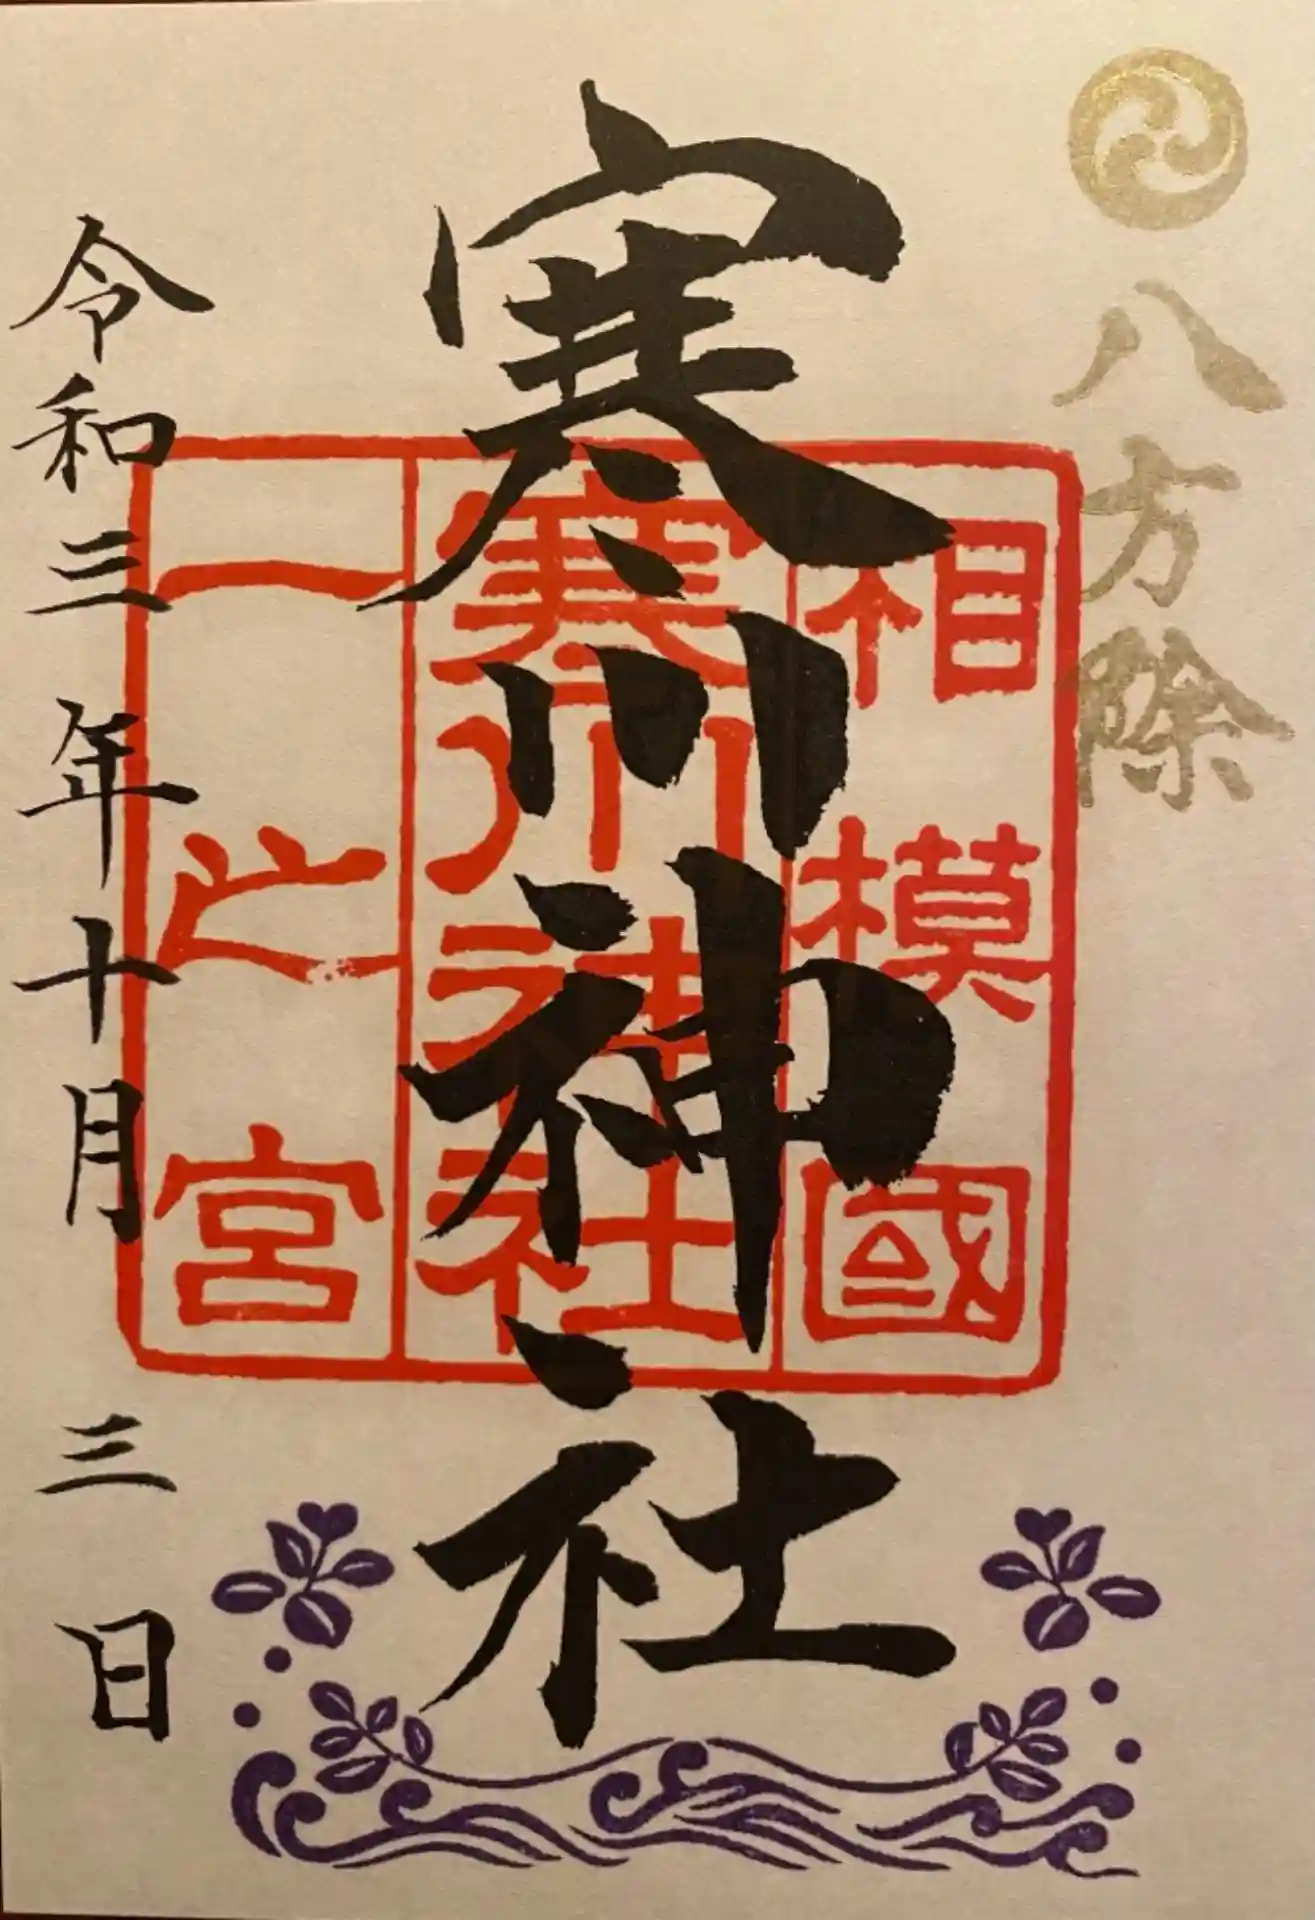 八方除
相模國
寒川神社
一之宮
寒川神社
令和三年十月三日